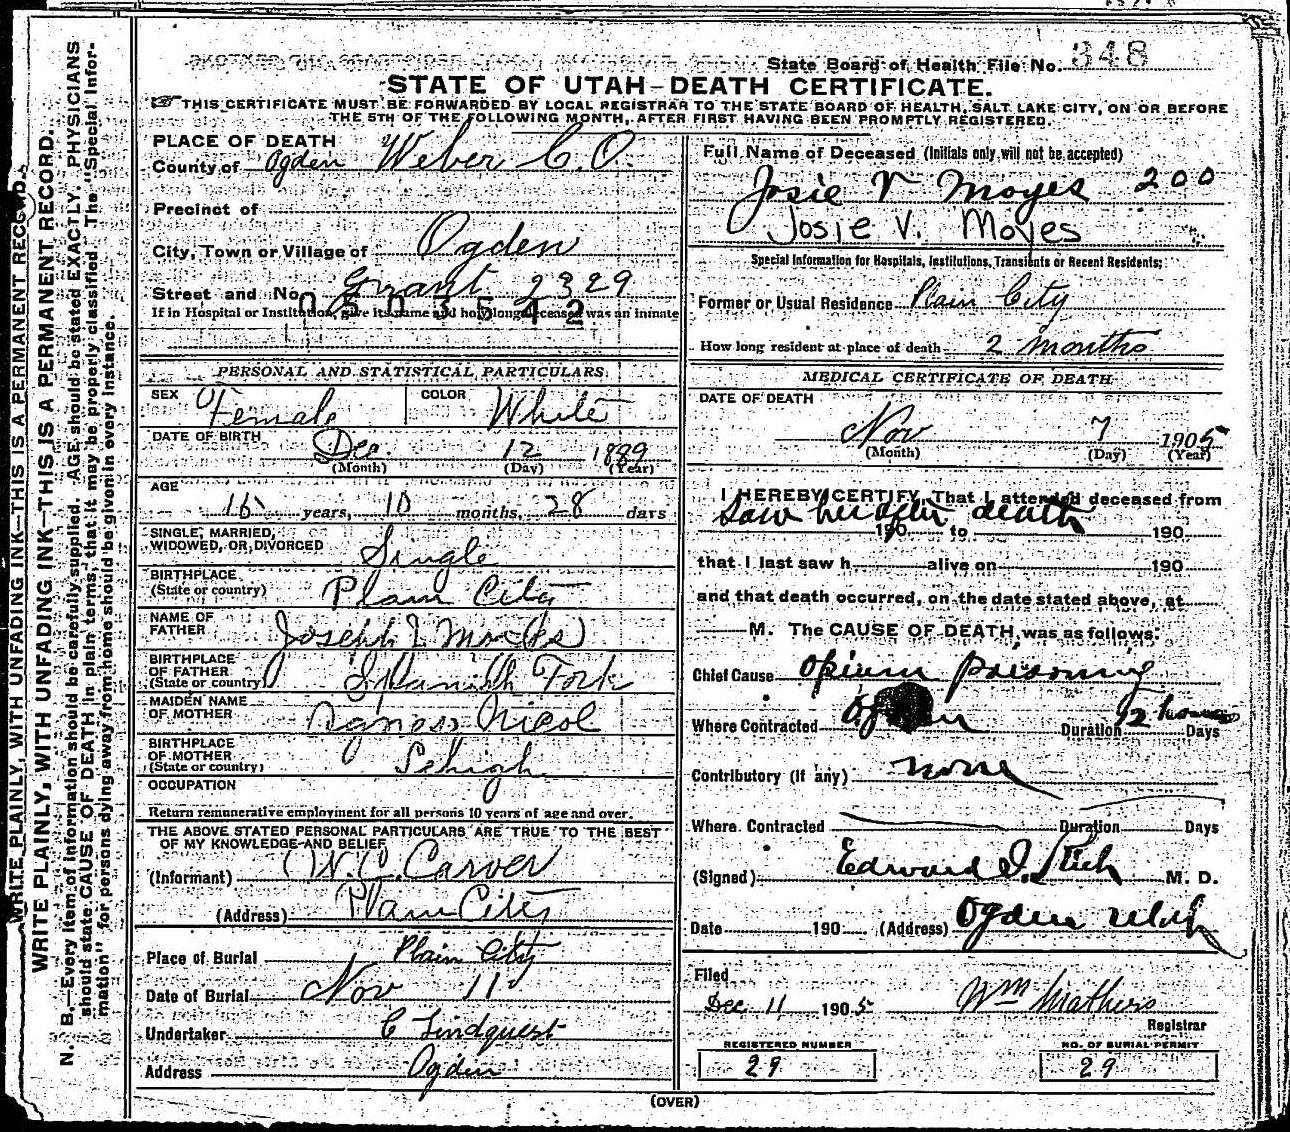 State Board of Health File No. 348
STATE OF UTAH-DEATH CERTIFICATE.
☞ THIS CERTIFICATE MUST BE FORWARDED BY LOCAL REGISTRAR TO THE STATE BOARD OF HEALTH, SALT LAKE CITY, ON OR BEFORE
THE 5TH OF THE FOLLOWING MONTH, AFTER FIRST HAVING BEEN PROMPTLY REGISTERED.
PLACE OF DEATH
County of Ogden Weber C.O.
Precinct of
City, Town or Village of Ogden
Street and No. Grant 2329
0503542
If in Hospital or Institution, give its name and how long deceased was an inmate
PERSONAL AND STATISTICAL PARTICULARS.
SEX Female COLOR White
DATE OF BIRTH Dec. 12 1889
(Month) (Day) (Year)
AGE
15 years, 10 months, 28 days
SINGLE, MARRIED,
WIDOWED, OR DIVORCED Single
BIRTHPLACE
(State or country) Plain City
NAME OF
FATHER Joseph Moyes
BIRTHPLACE
OF FATHER
(State or country) Spanish Fork
MAIDEN NAME
OF MOTHER Agness Nicol
BIRTHPLACE
OF MOTHER
(State or country) Lehigh
OCCUPATION
Return remunerative employment for all persons 10 years of age and over.
THE ABOVE STATED PERSONAL PARTICULARS ARE TRUE TO THE BEST
OF MY KNOWLEDGE AND BELIEF
(Informant) W. C. Carver
(Address) Plain City
Place of Burial Plain City
Date of Burial Nov 11
Undertaker C Lindquest
Address Ogden
Full Name of Deceased (Initials only will not be accepted)
Josie V Moyes 200
Josie V. Moyes
Special Information for Hospitals, Institutions, Transients or Recent Residents:
Former or Usual Residence Plain City
How long resident at place of death 2 months
MEDICAL CERTIFICATE OF DEATH
DATE OF DEATH
Nov 7 1905
(Month) (Day) (Year)
I HEREBY CERTIFY, That I attended deceased from
Saw her after death
190 to 190
that I last saw h alive on 190
and that death occurred, on the date stated above, at
M. The CAUSE OF DEATH was as follows:
Chief Cause Opium poisoning
Where Contracted Ogden Duration 12 hours Days
Contributory (if any) none
Where Contracted Duration Days
(Signed) Edward I. Rich M. D.
Date 190 (Address) Ogden Utah
Filed
Dec 11 1905 Wm Mathers
Registrar
REGISTERED NUMBER
29
NO. OF BURIAL PERMIT
29
(OVER)
WRITE PLAINLY, WITH UNFADING INK—THIS IS A PERMANENT RECORD.
WRITE PLAINLY, WITH UNFADING INK—THIS IS A PERMANENT RECORD.
N. B.—Every item of information should be carefully supplied. AGE should be stated EXACTLY. PHYSICIANS
should state CAUSE OF DEATH in plain terms, that it may be properly classified. The "Special Infor-
mation" for persons dying away from home should be given in every instance.